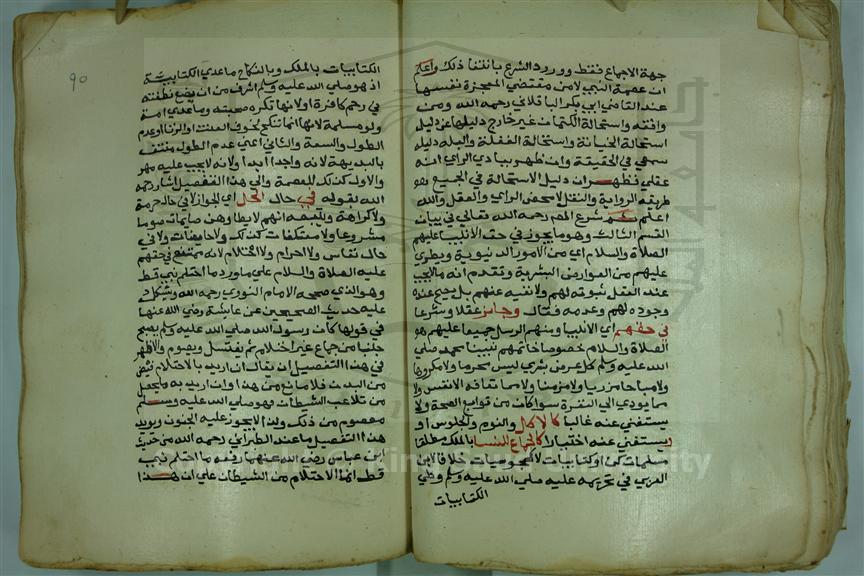 جهة الاجماع فقط وورود الشرع بانتفا ذلك واعلم
ان عصمة النبي لامن مقتضي المعجزة نفسها
عند القاضي ابي بكر الباقلاني رحمه الله ومن
وافقه واستحالة الكتمان غير خارج دليلها عن دليل
استحالة الخيانة واستحالة الغفلة والبله دليله
سمعي في الحقيقة وان ظهر ببادي الراي انه
عقلي فظهر ان دليل الاستحالة في الجميع هو
طريقه الرواية والنقل لامحض الراي والعقل والله
اعلم ثم شرع المص رحمه الله تعالي في بيان
القسم الثالث وهو ما يجوز في حق الانبيا عليهم
الصلاة والسلام اي من الامور الدنيوية ويطري
عليهم من العوارض البشرية وتقدم انه ما لايجب
عند العقل ثبوته لهم ولا نفيه عنهم بل يصح عنده
وجوده لهم وعدمه فقال وجايز عقلا وشرعا
في حقهم اي الانبيا ومنهم الرسل جميعا عليهم
الصلاة والسلام خصوصا خاتمهم نبينا محمد صلي
الله عليه وسلم كل عرض بشري ليس محرما ولا مكروها
ولا مباحا مزريا ولا مزمنا ولا مما تعافه الانفس ولا
مما يودي الي النفرة سوا كان من توابع الصحة ولا
يستغني عنه غالبا كالاكل والنوم والجلوس او
يستغني عنه اختيارا كالجماع للنسا بالملك مطلقا
مسلمات كن او كتابيات لا مجوسيات خلافا لابن
العربي في تحريمه عليه صلي الله عليه وسلم وطي
الكتابيات
90
الكتابيات بالملك وبالنكاح ما عدي الكتابية
اذ هو صلي الله عليه وسلم اشرف من ان يضع نطفته
في رحم كافرة او لانها تكره صحبته وما عدي امة
ولو مسلمة لانها انما تنكح لخوف العنت والزنا او عدم
الطول والسعة والثاني اعني عدم الطول منتف
بالبديهة لانه واجدا ابدا ولانه لا يجب عليه مهر
والاول كذلك للعصمة والي هذا التفصيل اشار رحمه
الله بقوله في حال الحل اي الجواز لا في حال حرمة
ولا كراهة ويتبعه انهم لا يطا وهن صايمات صوما
مشروعا ولا معتكفات كذلك ولا حايضات ولا في
حال نفاس ولا احرام ولا احتلام لانه ممتنع في حقهم
عليه الصلاة والسلام علي ما ورد ما احتلم نبي قط
وهو الذي صححه الامام النووي رحمه الله ويشكل
عليه حديث الصحيحين عن عايشة رضي الله عنها
في قولها كان رسول الله صلي الله عليه وسلم يصبح
جنبا من جماع غير احتلام ثم يغتسل ويصوم والاظهر
في هذا التفصيل ان يقال ان اريد بالاحتلام فيض
من البدن فلا مانع من هذا وان اريد به ما يحصل
من تلاعب الشيطان فهو صلي الله عليه وسلم
معصوم من ذلك ولذا لا يجوز عليه الجنون ويويد
هذا التفصيل ما عند الطبراني رحمه الله من حديث
ابن عباس رضي الله عنهما رفعه ما احتلم نبي
قط انما الاحتلام من الشيطان علي ان هذا